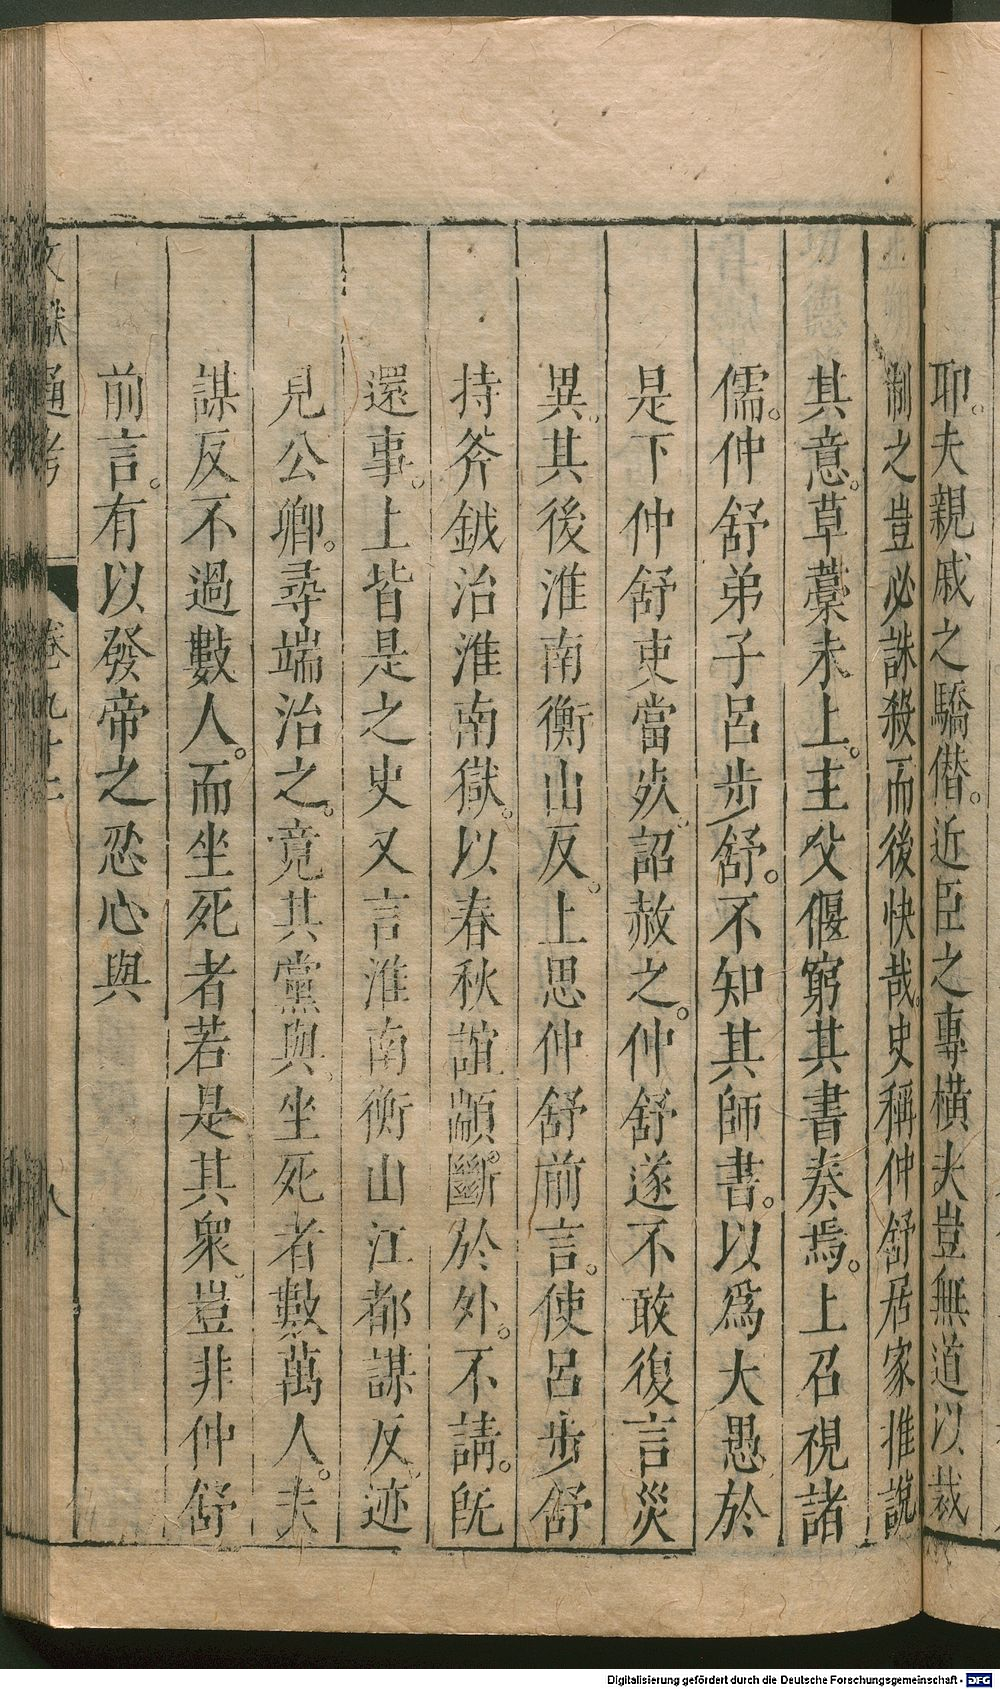 耶。夫親戚之驕僭。近臣之專橫夫豈無道以裁
制之豈必誅殺而後快哉。史稱仲舒居家推說
其意。草藁未上。主父偃窮其書奏焉。上召視諸
儒。仲舒弟子呂步舒。不知其師書。以爲大愚於
是下仲舒吏當死。詔赦之。仲舒遂不敢復言災
異。其後淮南衡山反。上思仲舒前言。使呂步舒
持斧鉞治淮南獄。以春秋誼顓斷於外。不請。旣
還事。上皆是之史又言淮南衡山江都謀反。迹
見公卿。尋端治之。竟其黨與。坐死者數萬人。夫
謀反不過數人。而坐死者若是其衆。豈非仲舒
前言。有以發帝之忍心與
文獻通考
卷九十二
八
Digitalisierung gefördert durch die Deutsche Forschungsgemeinschaft - DFG